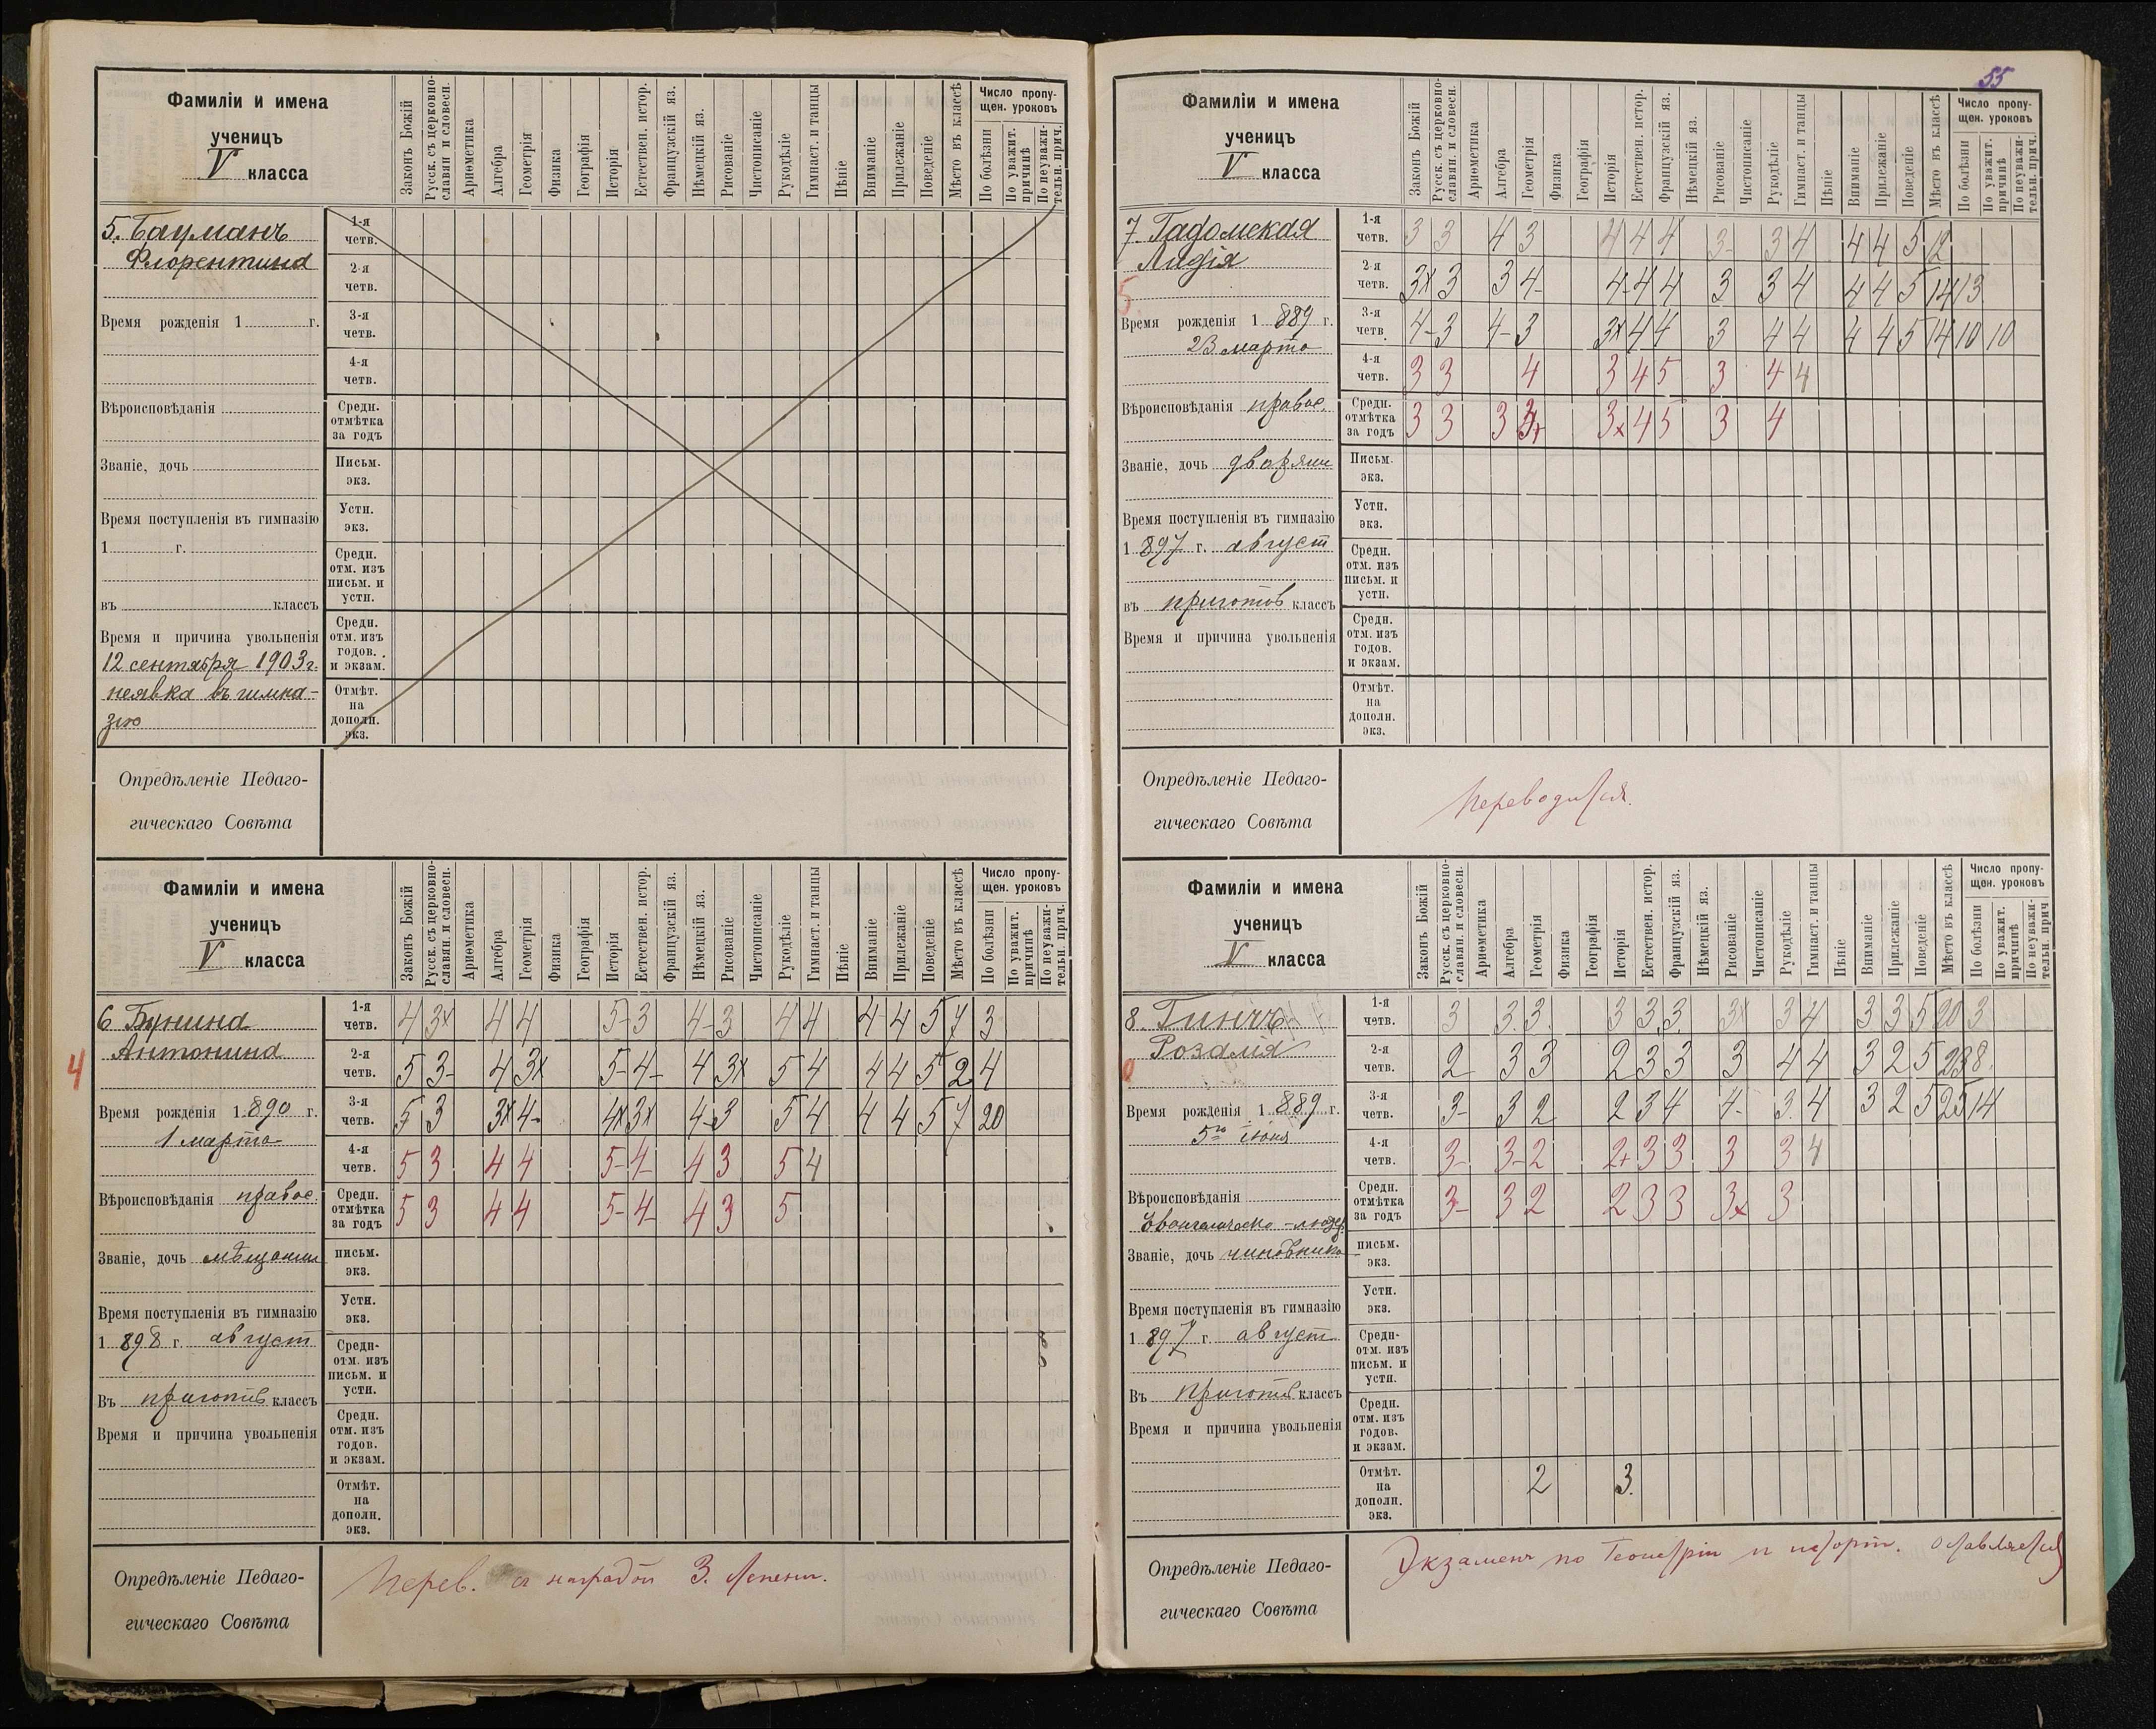 55
Фамиліи и имена
ученицъ
V класса
Законъ Божій
Русск. съ церковно-
славян. и словесн.
Ариѳметика
Алгебра
Геометрія
Физика
Географія
Исторія
Естествен. истор.
Французскій яз.
Нѣмецкій яз.
Рисованіе
Чистописаніе
Рукодѣліе
Гимнаст. и танцы
Пѣніе
Вниманіе
Прилежаніе
Поведеніе
Мѣсто въ классѣ
Число пропу-
щен. уроковъ
По болѣзни
По уважит.
причинѣ
По неуважи-
тельн. прич.
5. Бауманъ
Флорентина
Время рожденія 1 г.
Вѣроисповѣданія
Званіе, дочь
Время поступленія въ гимназію
1 г.
въ классъ
Время и причина увольненія
12 сентября 1903 г.
неявка въ гимна-
зію
1-я четв.
2-я четв.
3-я четв.
4-я четв.
Средн. отмѣтка за годъ
Письм. экз.
Устн. экз.
Средн. отм. изъ письм. и устн.
Средн. отм. изъ годов. и экзам.
Отмѣт. на дополн. экз.
Опредѣленіе Педаго-
гическаго Совѣта
Фамиліи и имена
ученицъ
V класса
Законъ Божій
Русск. съ церковно-
славян. и словесн.
Ариѳметика
Алгебра
Геометрія
Физика
Географія
Исторія
Естествен. истор.
Французскій яз.
Нѣмецкій яз.
Рисованіе
Чистописаніе
Рукодѣліе
Гимнаст. и танцы
Пѣніе
Вниманіе
Прилежаніе
Поведеніе
Мѣсто въ классѣ
Число пропу-
щен. уроковъ
По болѣзни
По уважит.
причинѣ
По неуважи-
тельн. прич.
6 Бунина
Антонина
4
Время рожденія 1 890 г.
1 марта
Вѣроисповѣданія правос.
Званіе, дочь мѣщанин
Время поступленія въ гимназію
1 898 г. август
Въ приготов классъ
Время и причина увольненія
1-я четв. 4 3x 4 4 5- 3 4- 3 4 4 4 4 5 7 3
2-я четв. 5 3- 4 3x 5- 4- 4 3x 5 4 4 4 5 2 4
3-я четв. 5 3 3x 4- 4x 3x 4- 3 5 4 4 4 5 7 20
4-я четв. 5 3 4 4 5- 4- 4 3 5 4
Средн. отмѣтка за годъ 5 3 4 4 5- 4- 4 3 5
письм. экз.
Устн. экз.
Средн- отм. изъ письм. и устн.
Средн. отм. изъ годов. и экзам.
Отмѣт. на дополн. экз.
Опредѣленіе Педаго-
гическаго Совѣта
Перев. съ наградой 3. степени.
Фамиліи и имена
ученицъ
V класса
Законъ Божій
Русск. съ церковно-
славян. и словесн.
Ариѳметика
Алгебра
Геометрія
Физика
Географія
Исторія
Естествен. истор.
Французскій яз.
Нѣмецкій яз.
Рисованіе
Чистописаніе
Рукодѣліе
Гимнаст. и танцы
Пѣніе
Вниманіе
Прилежаніе
Поведеніе
Мѣсто въ классѣ
Число пропу-
щен. уроковъ
По болѣзни
По уважит.
причинѣ
По неуважи-
тельн. прич.
7. Гадомская
Лидія
5.
Время рожденія 1 889 г.
23 марта
Вѣроисповѣданія правос.
Званіе, дочь дворянин
Время поступленія въ гимназію
1 897 г. август
въ приготов классъ
Время и причина увольненія
1-я четв. 3 3 4 3 4 4 4 3- 3 4 4 4 5 12
2-я четв. 3x 3 3 4- 4- 4 4 3 3 4 4 4 5 14 13
3-я четв. 4- 3 4- 3 3x 4 4 3 4 4 4 4 5 14 10 10
4-я четв. 3 3 4 3 4 5 3 4 4
Средн. отмѣтка за годъ 3 3 3 3x 3x 4 5 3 4
Письм. экз.
Устн. экз.
Средн. отм. изъ письм. и устн.
Средн. отм. изъ годов. и экзам.
Отмѣт. на дополн. экз.
Опредѣленіе Педаго-
гическаго Совѣта
Переводится.
Фамиліи и имена
ученицъ
V класса
Законъ Божій
Русск. съ церковно-
славян. и словесн.
Ариѳметика
Алгебра
Геометрія
Физика
Географія
Исторія
Естествен. истор.
Французскій яз.
Нѣмецкій яз.
Рисованіе
Чистописаніе
Рукодѣліе
Гимнаст. и танцы
Пѣніе
Вниманіе
Прилежаніе
Поведеніе
Мѣсто въ классѣ
Число пропу-
щен. уроковъ
По болѣзни
По уважит.
причинѣ
По неуважи-
тельн. прич
8. Гинчъ
Розалія
0
Время рожденія 1 889 г.
5го іюня
Вѣроисповѣданія
Евангелическо-лютер.
Званіе, дочь чиновника
Время поступленія въ гимназію
1 897 г. август
Въ приготов. классъ
Время и причина увольненія
1-я четв. 3 3 3 3 3 3 3x 3 4 3 3 5 20 3
2-я четв. 2 3 3 2 3 3 3 4 4 3 2 5 23 8
3-я четв. 3- 3 2 2 3 4 4- 3 4 3 2 5 25 14
4-я четв. 3- 3- 2 2+ 3 3 3 3 4
Средн. отмѣтка за годъ 3- 3 2 2 3 3 3x 3
письм. экз.
Устн. экз.
Средн- отм. изъ письм. и устн.
Средн. отм. изъ годов. и экзам.
Отмѣт. на дополн. экз. 2 3.
Опредѣленіе Педаго-
гическаго Совѣта
Экзаменъ по Геометріи и исторіи. оставляется